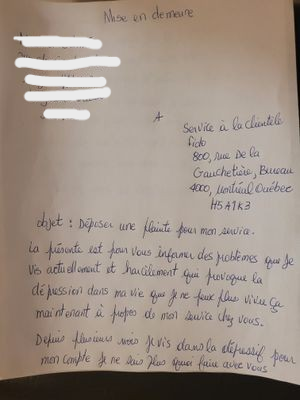 Mise en demeure
A
Service à la clientèle
fido
800, rue De la
Gauchetière, Bureau
4000, Montréal Québec
H5A1K3
objet : Déposer une plainte pour mon service.
la présente est pour vous informer des problèmes que je
vis actuellement et harcilement qui provoque la
dépression dans ma vie que je ne peux plus vivre ça
maintenant à propos de mon service chez vous.
Depuis plusieurs mois je vis dans la dépressif pour
mon compte je ne sais plus quoi faire avec vous